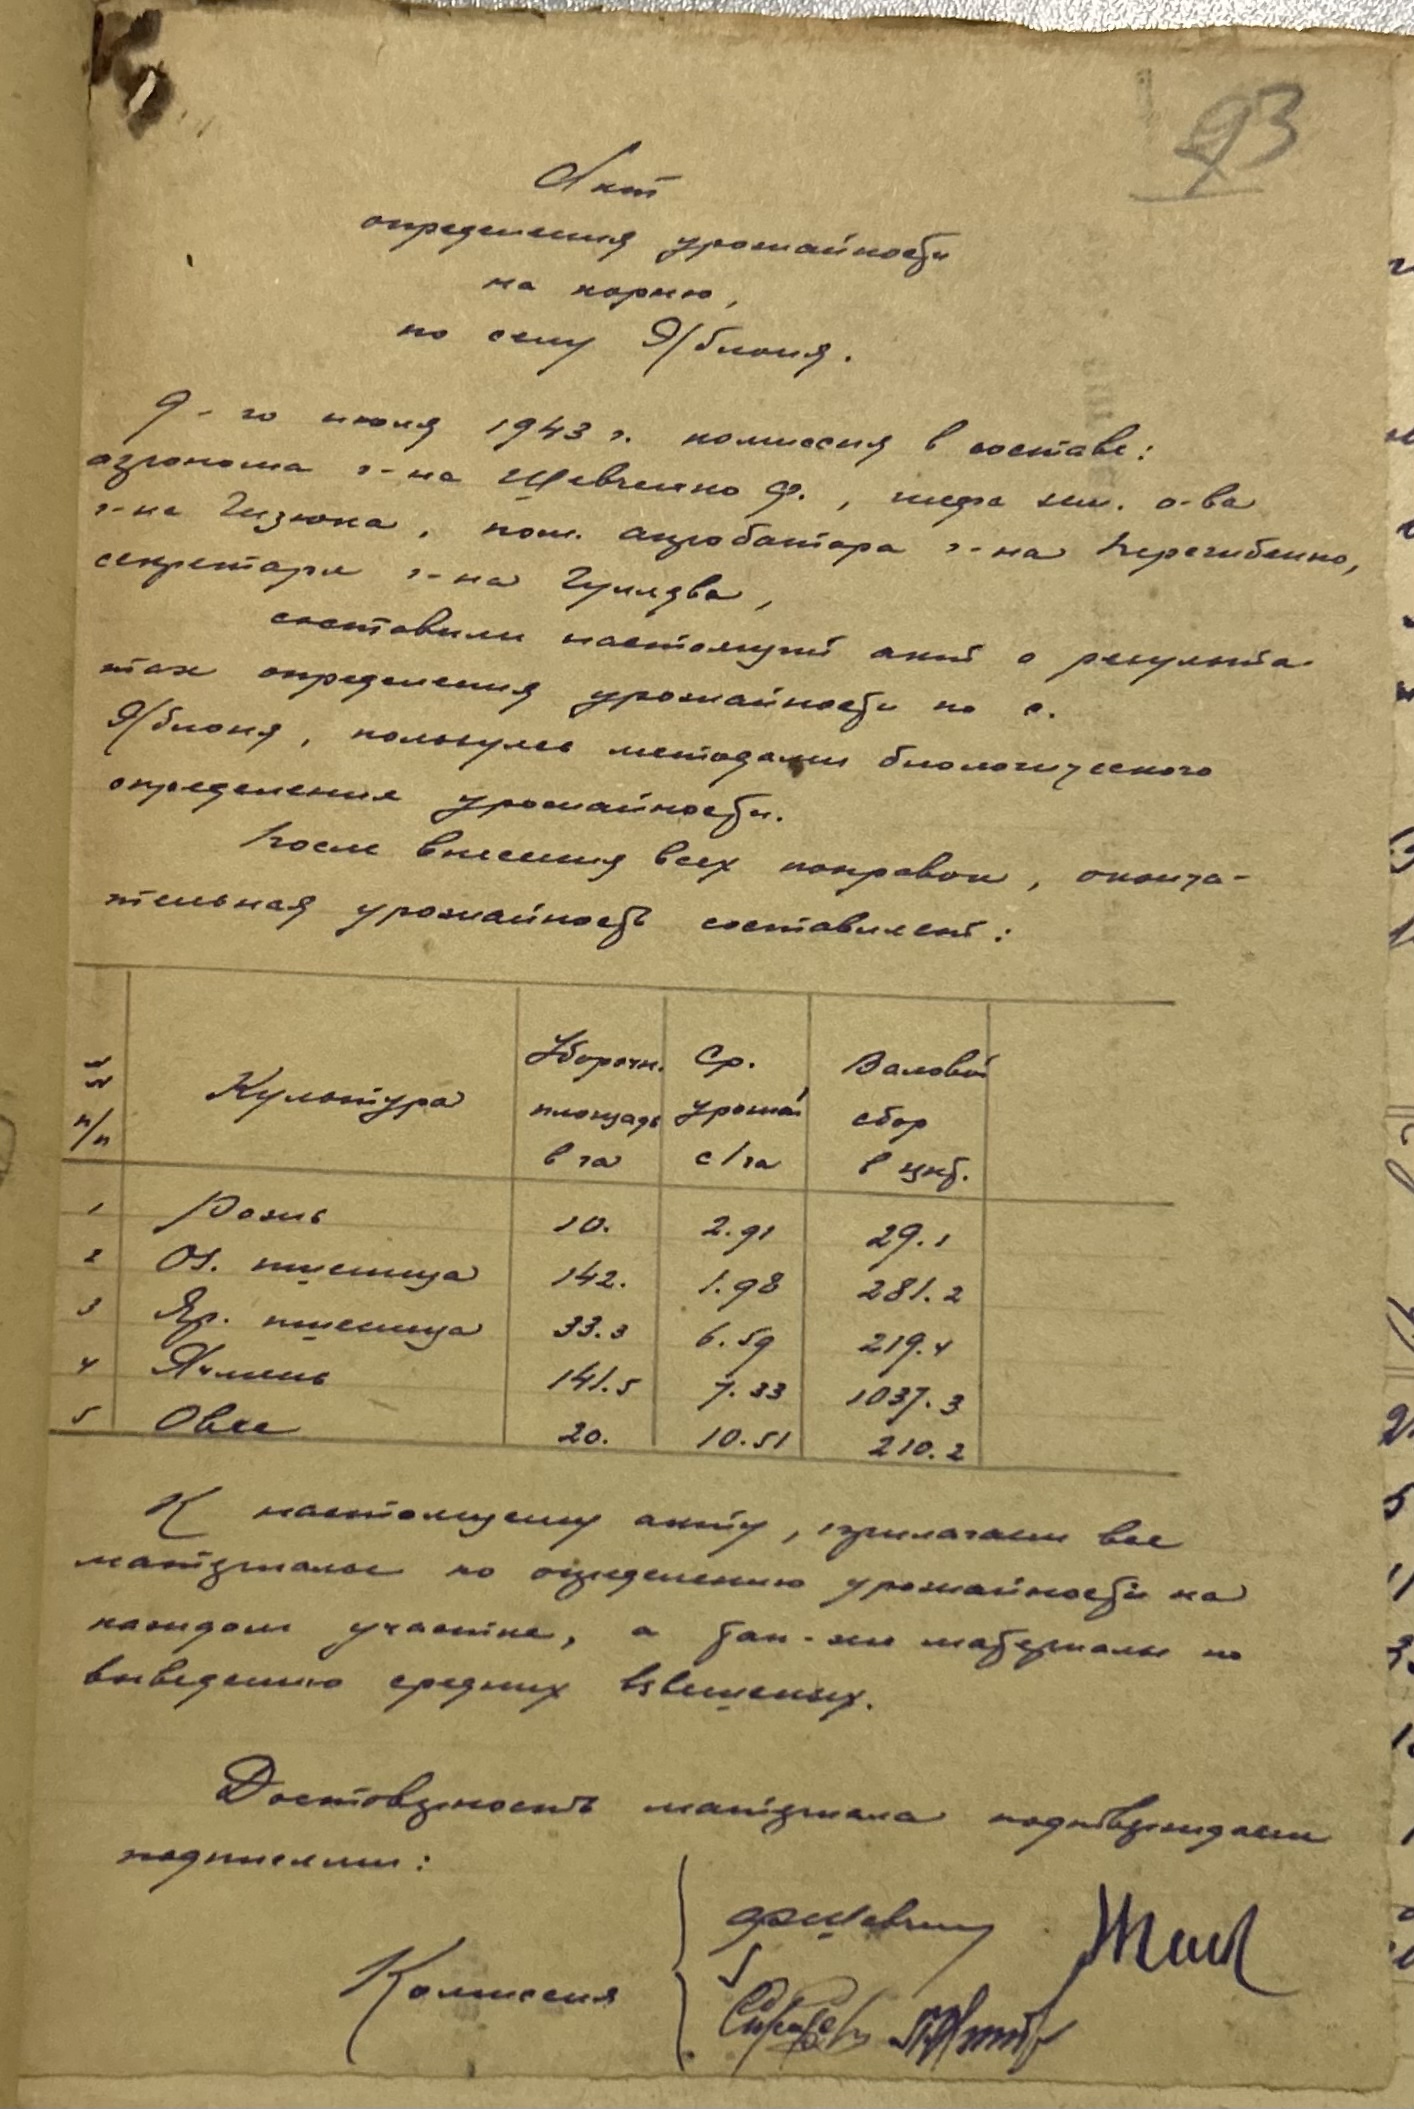 93
Акт
определения урожайности
на корню,
по селу Яблоня.
9-го июля 1943 г. комиссия в составе:
агронома г-на Шевченко Ф., шефа зем. о-ва
г-на Гизюка, пом. апробатора г-на Перегибенко,
секретаря г-на Гуляева,
составили настоящий акт о результа-
тах определения урожайности по с.
Яблоня, пользуясь методами биологического
определения урожайности.
После внесения всех поправок, оконча-
тельная урожайность составиляет:
№№ п/п Культура Уборочн. площадь в га Ср. урожай с/га Валовой сбор в цнт.
1 Рожь 10. 2.91 29.1
2 Оз. пшеница 142. 1.98 281.2
3 Яр. пшеница 33.3 6.59 219.4
4 Ячмень 141.5 7.33 1037.3
5 Овес 20. 10.51 210.2
К настоящему акту, прилагаем все
материалы по определению урожайности на
каждом участке, а так-же материалы по
выведению средних взвешеных.
Достоверность материала подтверждаем
подписями:
Комиссия